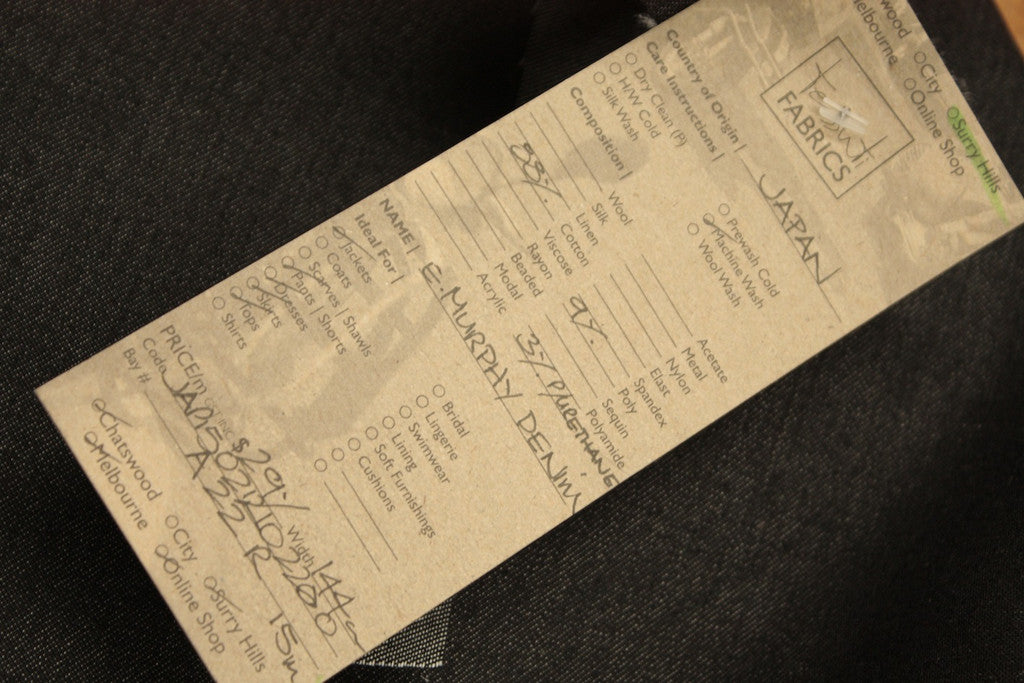 Chatswood ○City ○Surry Hills
Melbourne ○Online Shop
Tessuti
FABRICS
Country of Origin | JAPAN
Care Instructions |
○ Dry Clean (P) ○ Prewash Cold
○ H/W Cold ○ Machine Wash
○ Silk Wash ○ Wool Wash
Composition |
Wool Acetate
Silk Metal
Linen Nylon
88% Cotton Elast
Viscose Spandex
Rayon 9% Poly
Beaded Sequin
Modal Polyamide
Acrylic 3% P/URETHANE
NAME | E. MURPHY DENIM
Ideal For |
○ Jackets ○ Bridal
○ Coats ○ Lingerie
○ Scarves | Shawls ○ Swimwear
○ Pants | Shorts ○ Lining
○ Dresses ○ Soft Furnishings
○ Skirts ○ Cushions
○ Tops ○
○ Shirts
PRICE/m $29/ Width 144cm
Code
Bay # A 22 R 15m
○Chatswood ○City ○Surry Hills
○Melbourne ○Online Shop